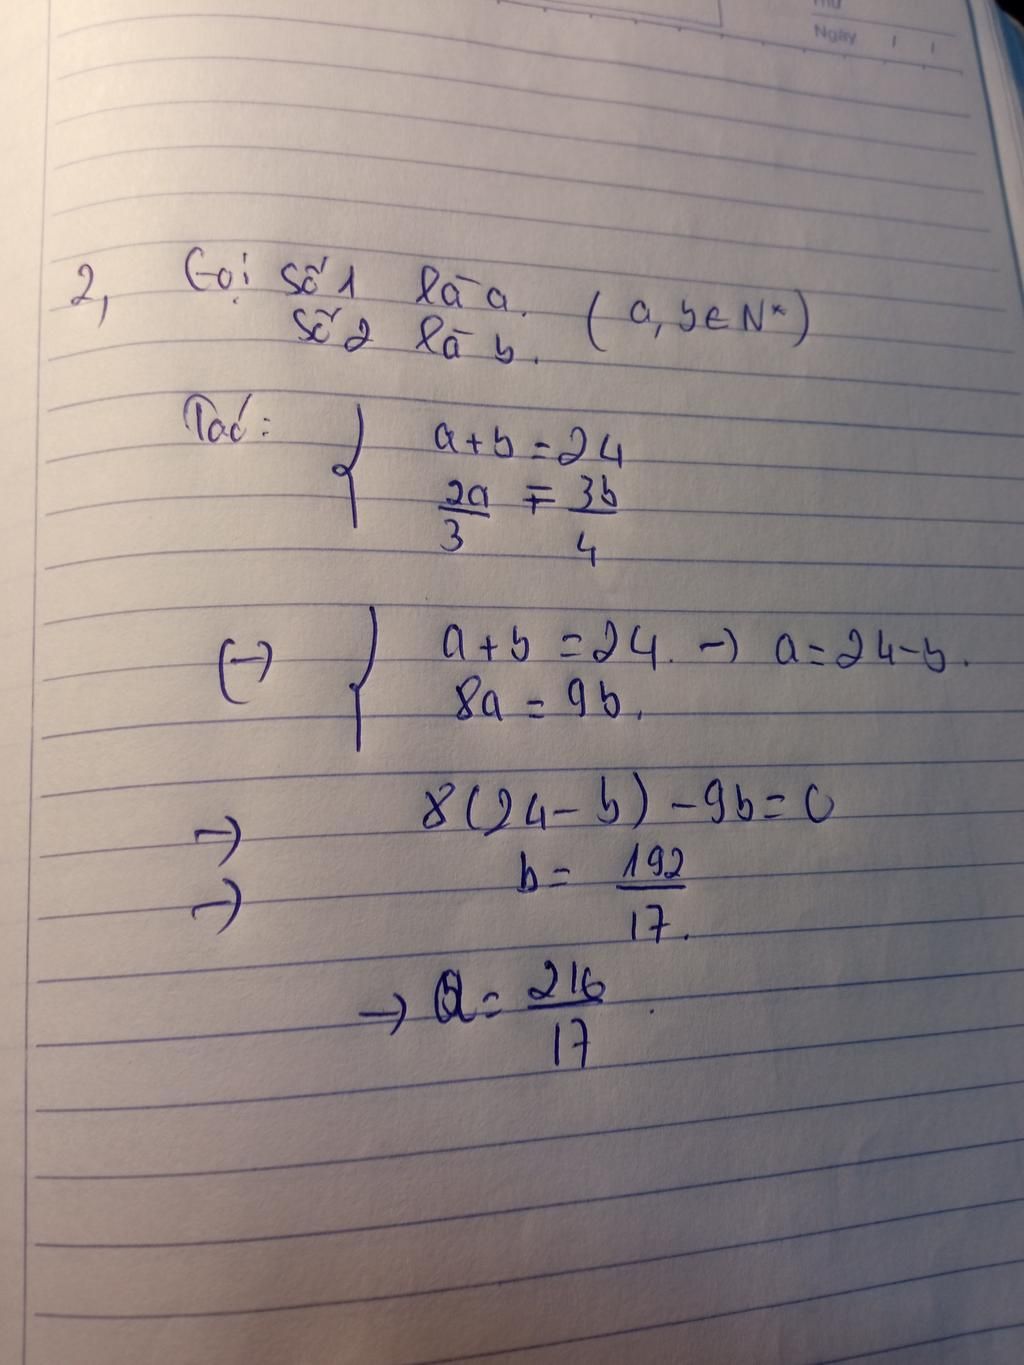 Thứ
Ngày / /
2, Gọi Số 1 là a. ( a, b ∈ N* )
Số 2 là b.
Ta có:
a + b = 24
2a/3 = 3b/4
(→)
a + b = 24. → a = 24 - b.
8a = 9b.
→ 8(24 - b) - 9b = 0
→ b = 192/17.
→ a = 216/17.